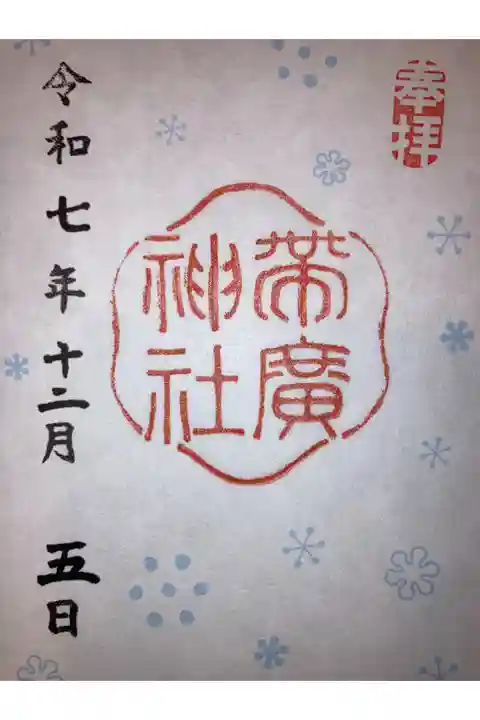 奉拝
帯廣
神社
令和七年十二月 五日